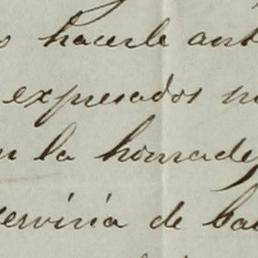 hacerle ant
expresados
la honrade
serviria de ba